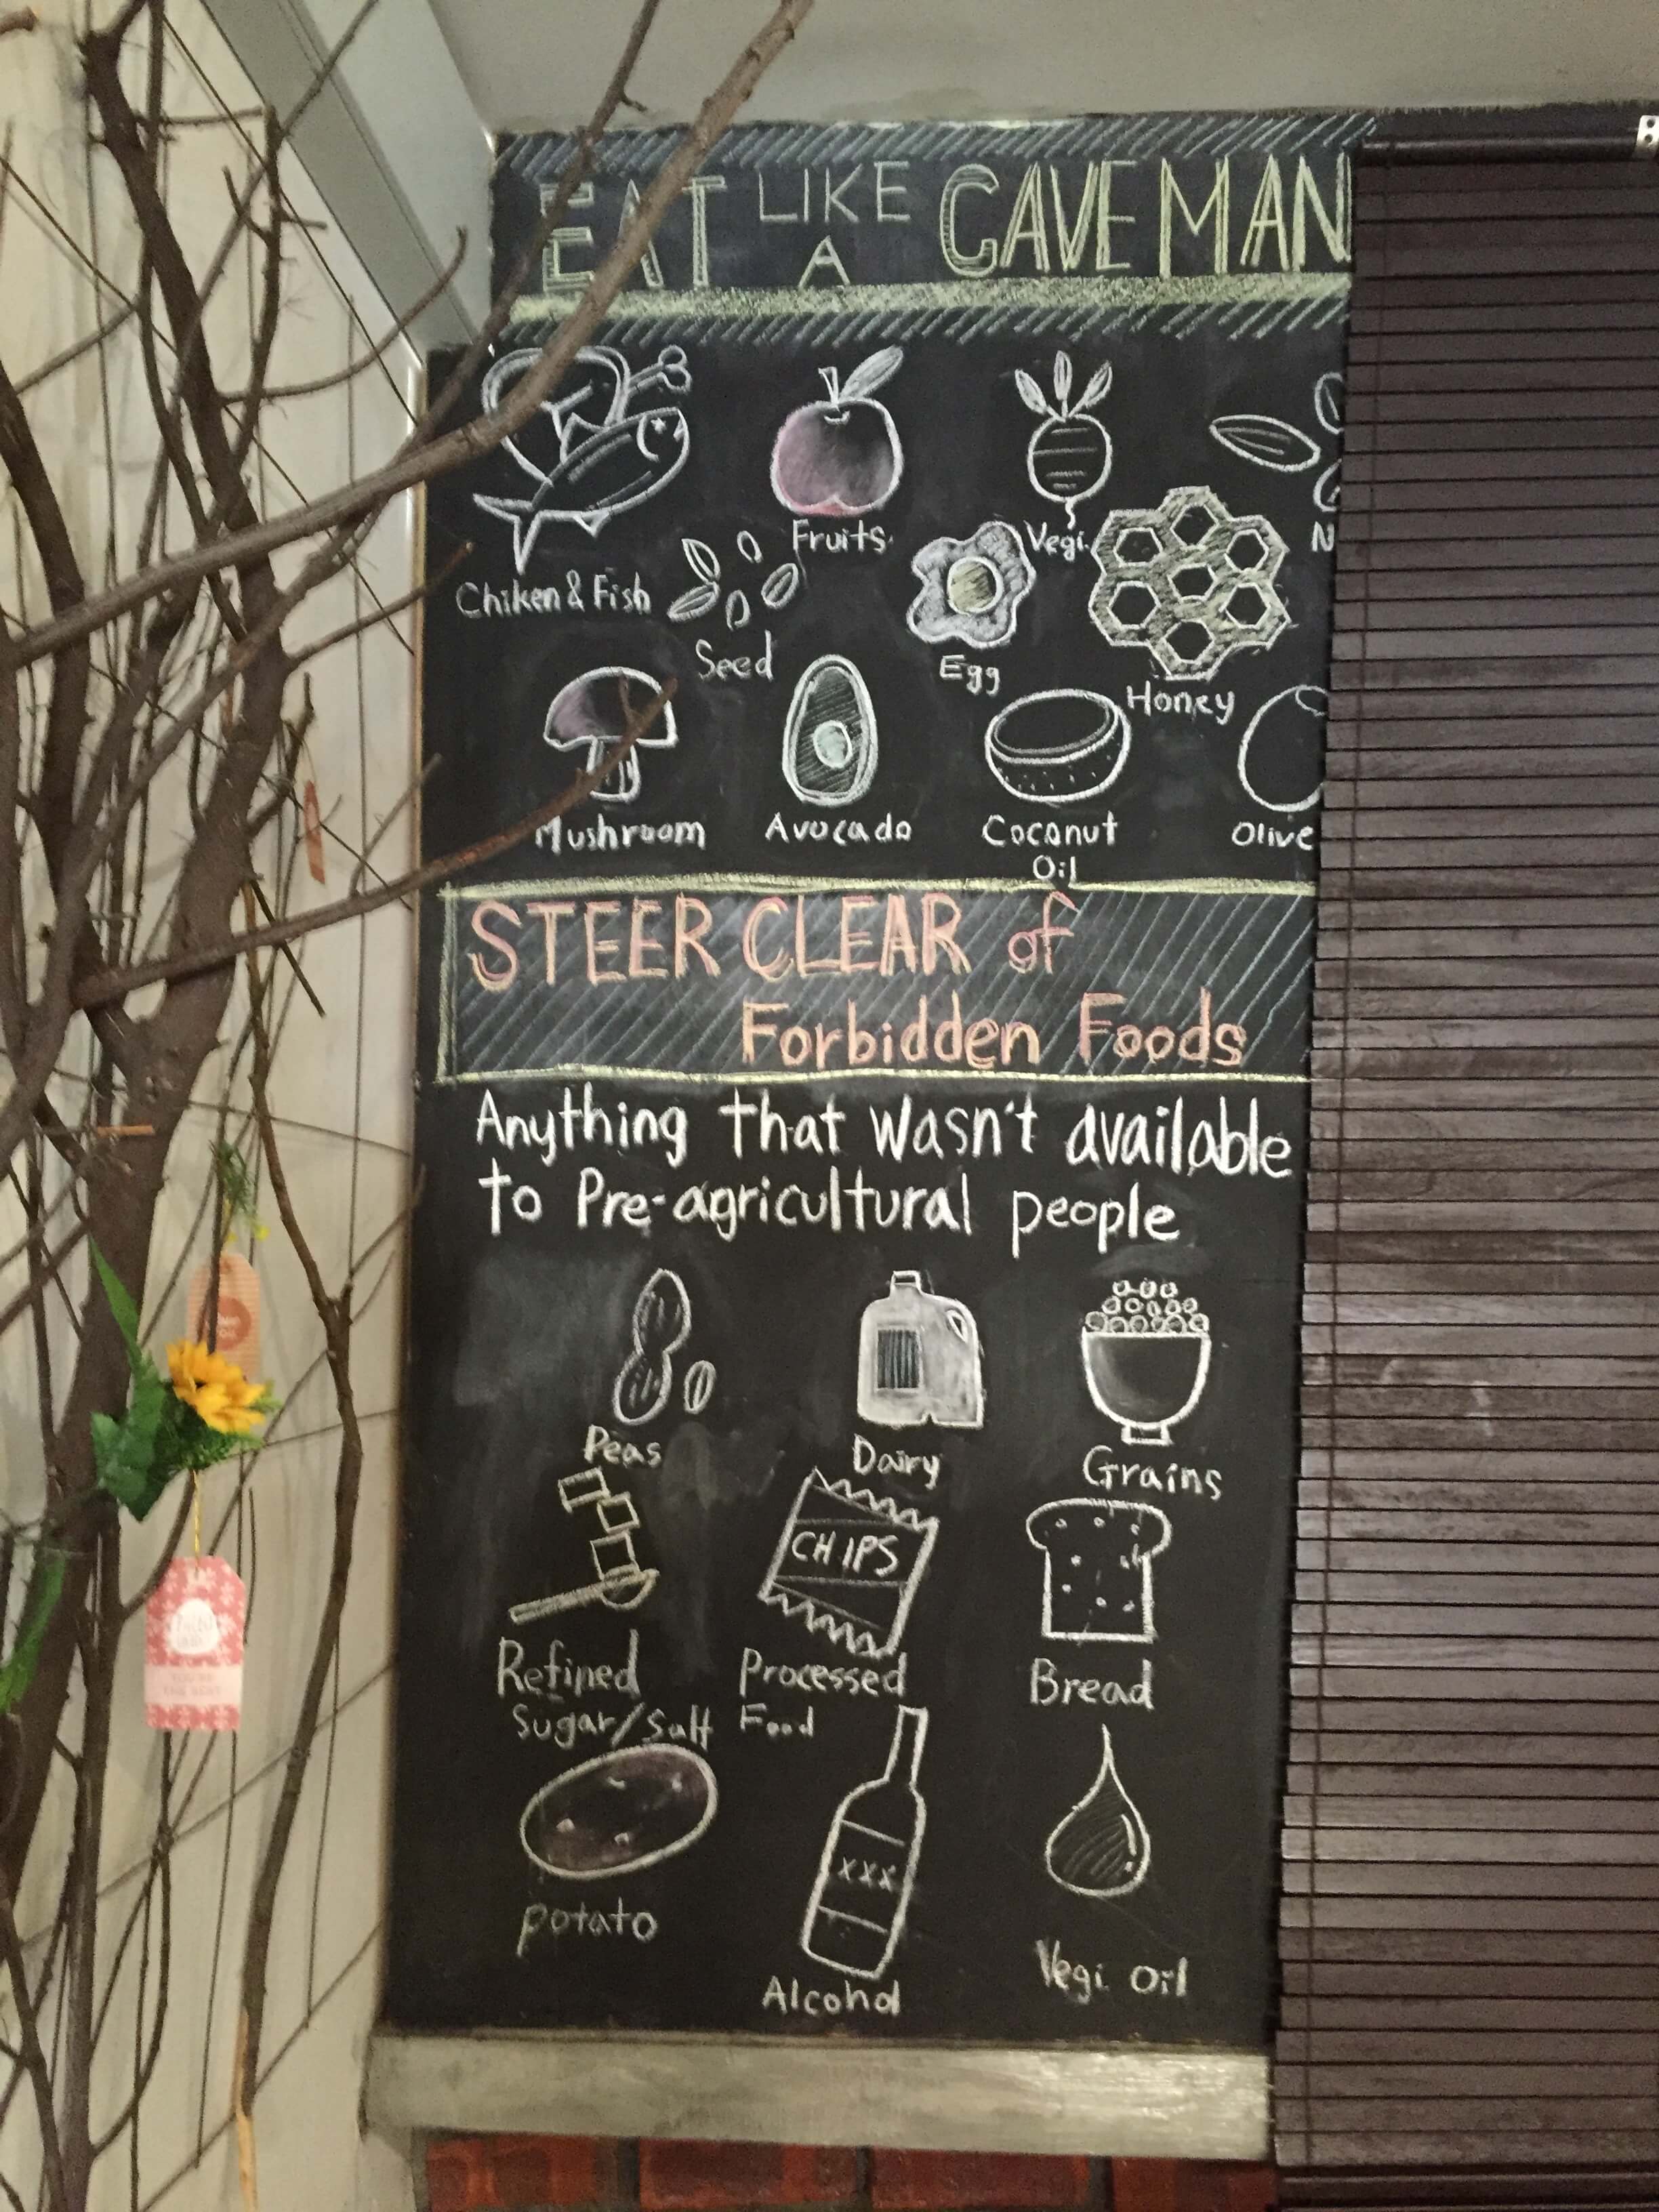 EAT LIKE A CAVEMAN
Chiken & Fish
Fruits
Vegi.
N
Seed
Egg
Honey
Mushroom
Avocado
Coconut
Oil
Olive
STEER CLEAR of
Forbidden Foods
Anything that wasn't available
to Pre-agricultural people
Peas
Dairy
Grains
CHIPS
Refined
Sugar/Salt
Processed
Food
Bread
potato
XXX
Alcohol
Vegi Oil